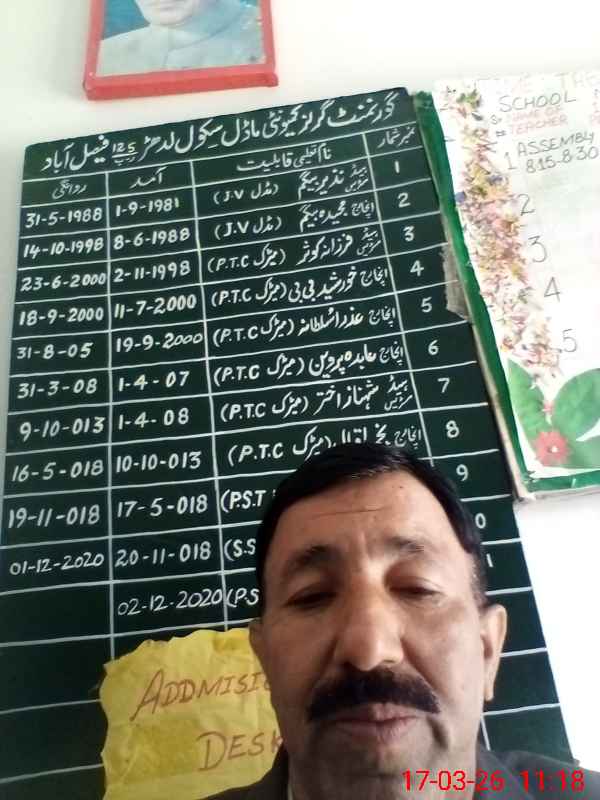 گورنمنٹ گرلز کمیونٹی ماڈل سکول لدھڑ 125 ر ب فیصل آباد
نمبر شمار نام تعلیمی قابلیت آمد روانگی
1 ہیڈ مسٹریس نذیر بیگم (مڈل J.V) 1-9-1981 31-5-1988
2 انچارج مجیدہ بیگم (مڈل J.V) 8-6-1988 14-10-1998
3 ہیڈ مسٹریس فرزانہ کوثر (میٹرک P.T.C) 2-11-1998 23-6-2000
4 انچارج خورشید بی بی (میٹرک P.T.C) 11-7-2000 18-9-2000
5 انچارج عذرا سلطانہ (میٹرک P.T.C) 19-9-2000 31-8-05
6 انچارج عابدہ پروین (میٹرک P.T.C) 1-4-07 31-3-08
7 ہیڈ مسٹریس شہناز اختر (میٹرک P.T.C) 1-4-08 9-10-013
8 انچارج (میٹرک P.T.C) 10-10-013 16-5-018
9 (P.S.T 17-5-018 19-11-018
0 (S.S 20-11-018 01-12-2020
1 (P.S 02-12-2020
ADDMISIO
DESK
TIME TAB
SCHOOL
S# NAME OF TEACHER
1 ASSEMBLY
8:15-8:30
2
3
4
5
17-03-26 11:18